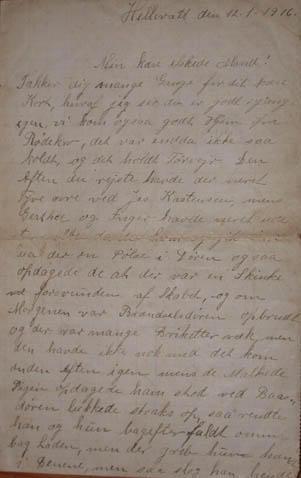 Hellevatt den 12-1-1916.
Min kære elskede Mand!
Takker dig mange Gange for dit kære
Kort, hvoraf jeg ser du er godt
igen, vi kom ogsaa godt hjem fra
Rødekro, det var endda ikke saa
koldt, og det holdt Tørvejr. Den
Aften du rejste havde der været
Tyve ovre ved Jes Kastensen, mens
og Inger havde været
der en i Døren og saa
opdagede de at der var en Skinke
forsvunden af Skabet, og om
Morgenen var Brændselsdøren opbrudt
og der var mange Briketter væk, men
den havde ikke nok med det kom
anden Aften igen mens de Malkede
Pigen opdagede ham stod ved
døren lukkede straks op, saa rendte
han og hun bagefter faldt omme
bag Laden, men der greb hun ham
i Benene, men saa slog han hende